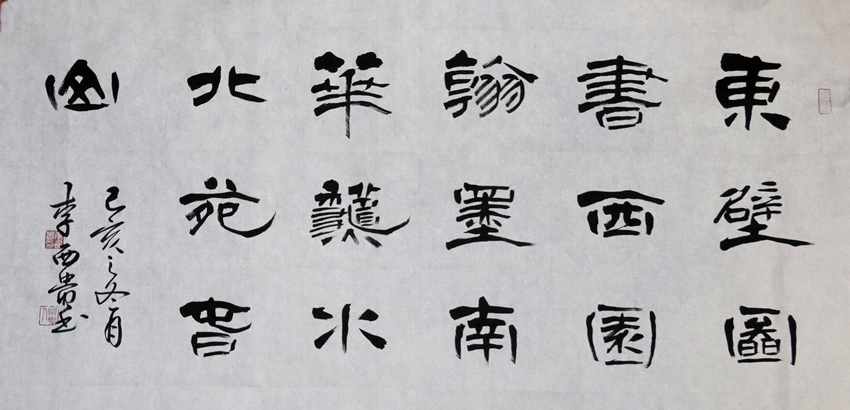 東壁圖
書西園
翰墨南
華龝水
北苑旾
山
己亥之冬月
李西贵书